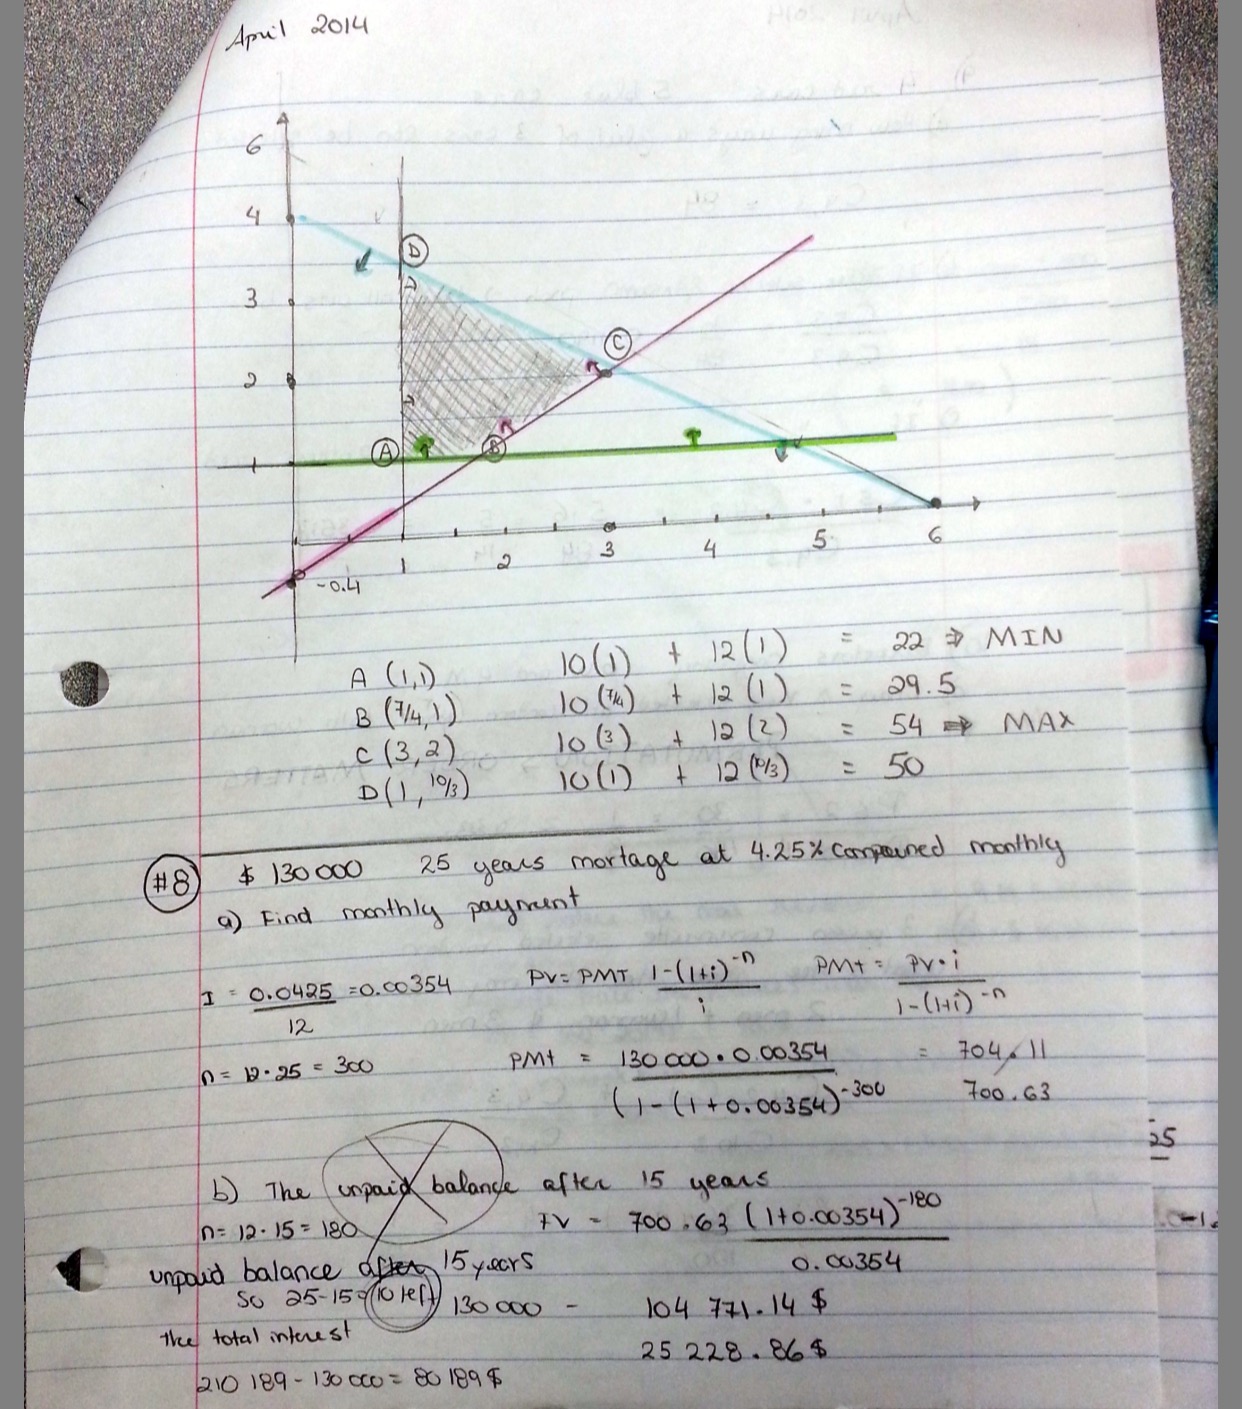 April 2014
6
4
D
3
C
2
A
B
1
1
2
3
4
5
6
-0.4
A (1,1) 10(1) + 12(1) = 22 ⇒ MIN
B (7/4,1) 10(7/4) + 12(1) = 29.5
C (3,2) 10(3) + 12(2) = 54 ⇒ MAX
D(1, 10/3) 10(1) + 12(10/3) = 50
#8 $ 130 000 25 years mortage at 4.25% compouned monthly
a) Find monthly payment
I = 0.0425/12 = 0.00354 PV = PMT 1-(1+i)^-n / i PMt = PV·i / 1-(1+i)^-n
n = 12·25 = 300 PMt = 130 000 · 0.00354 / (1-(1+0.00354)^-300 = 704.11
700.63
25
b) The unpaid balance after 15 years
n = 12·15 = 180 FV = 700.63 (1+0.00354)^-180 / 0.00354
unpaid balance after 15 years
So 25-15= 10 left 130 000 - 104 771.14 $
the total interest 25 228.86 $
210 189 - 130 000 = 80 189 $